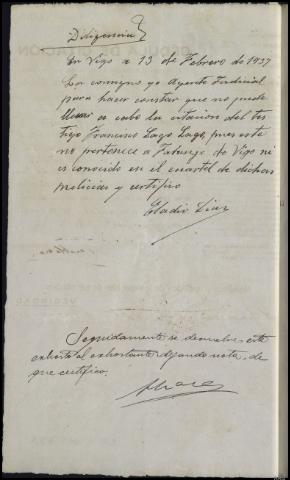 Diligencia
En Vigo a 13 de Febrero de 1937
La consigno yo Agente Judicial
para hacer constar que no puede
llevar a cabo la citacion del tes
tigo Francisco Lago Lago, pues este
no pertenece a Falange de Vigo ni
es conocido en el cuartel de dichas
milicias y certifico
Eladio Diaz
Seguidamente se devuelve este
exhorto al exhortante dejando nota, de
que certifico.